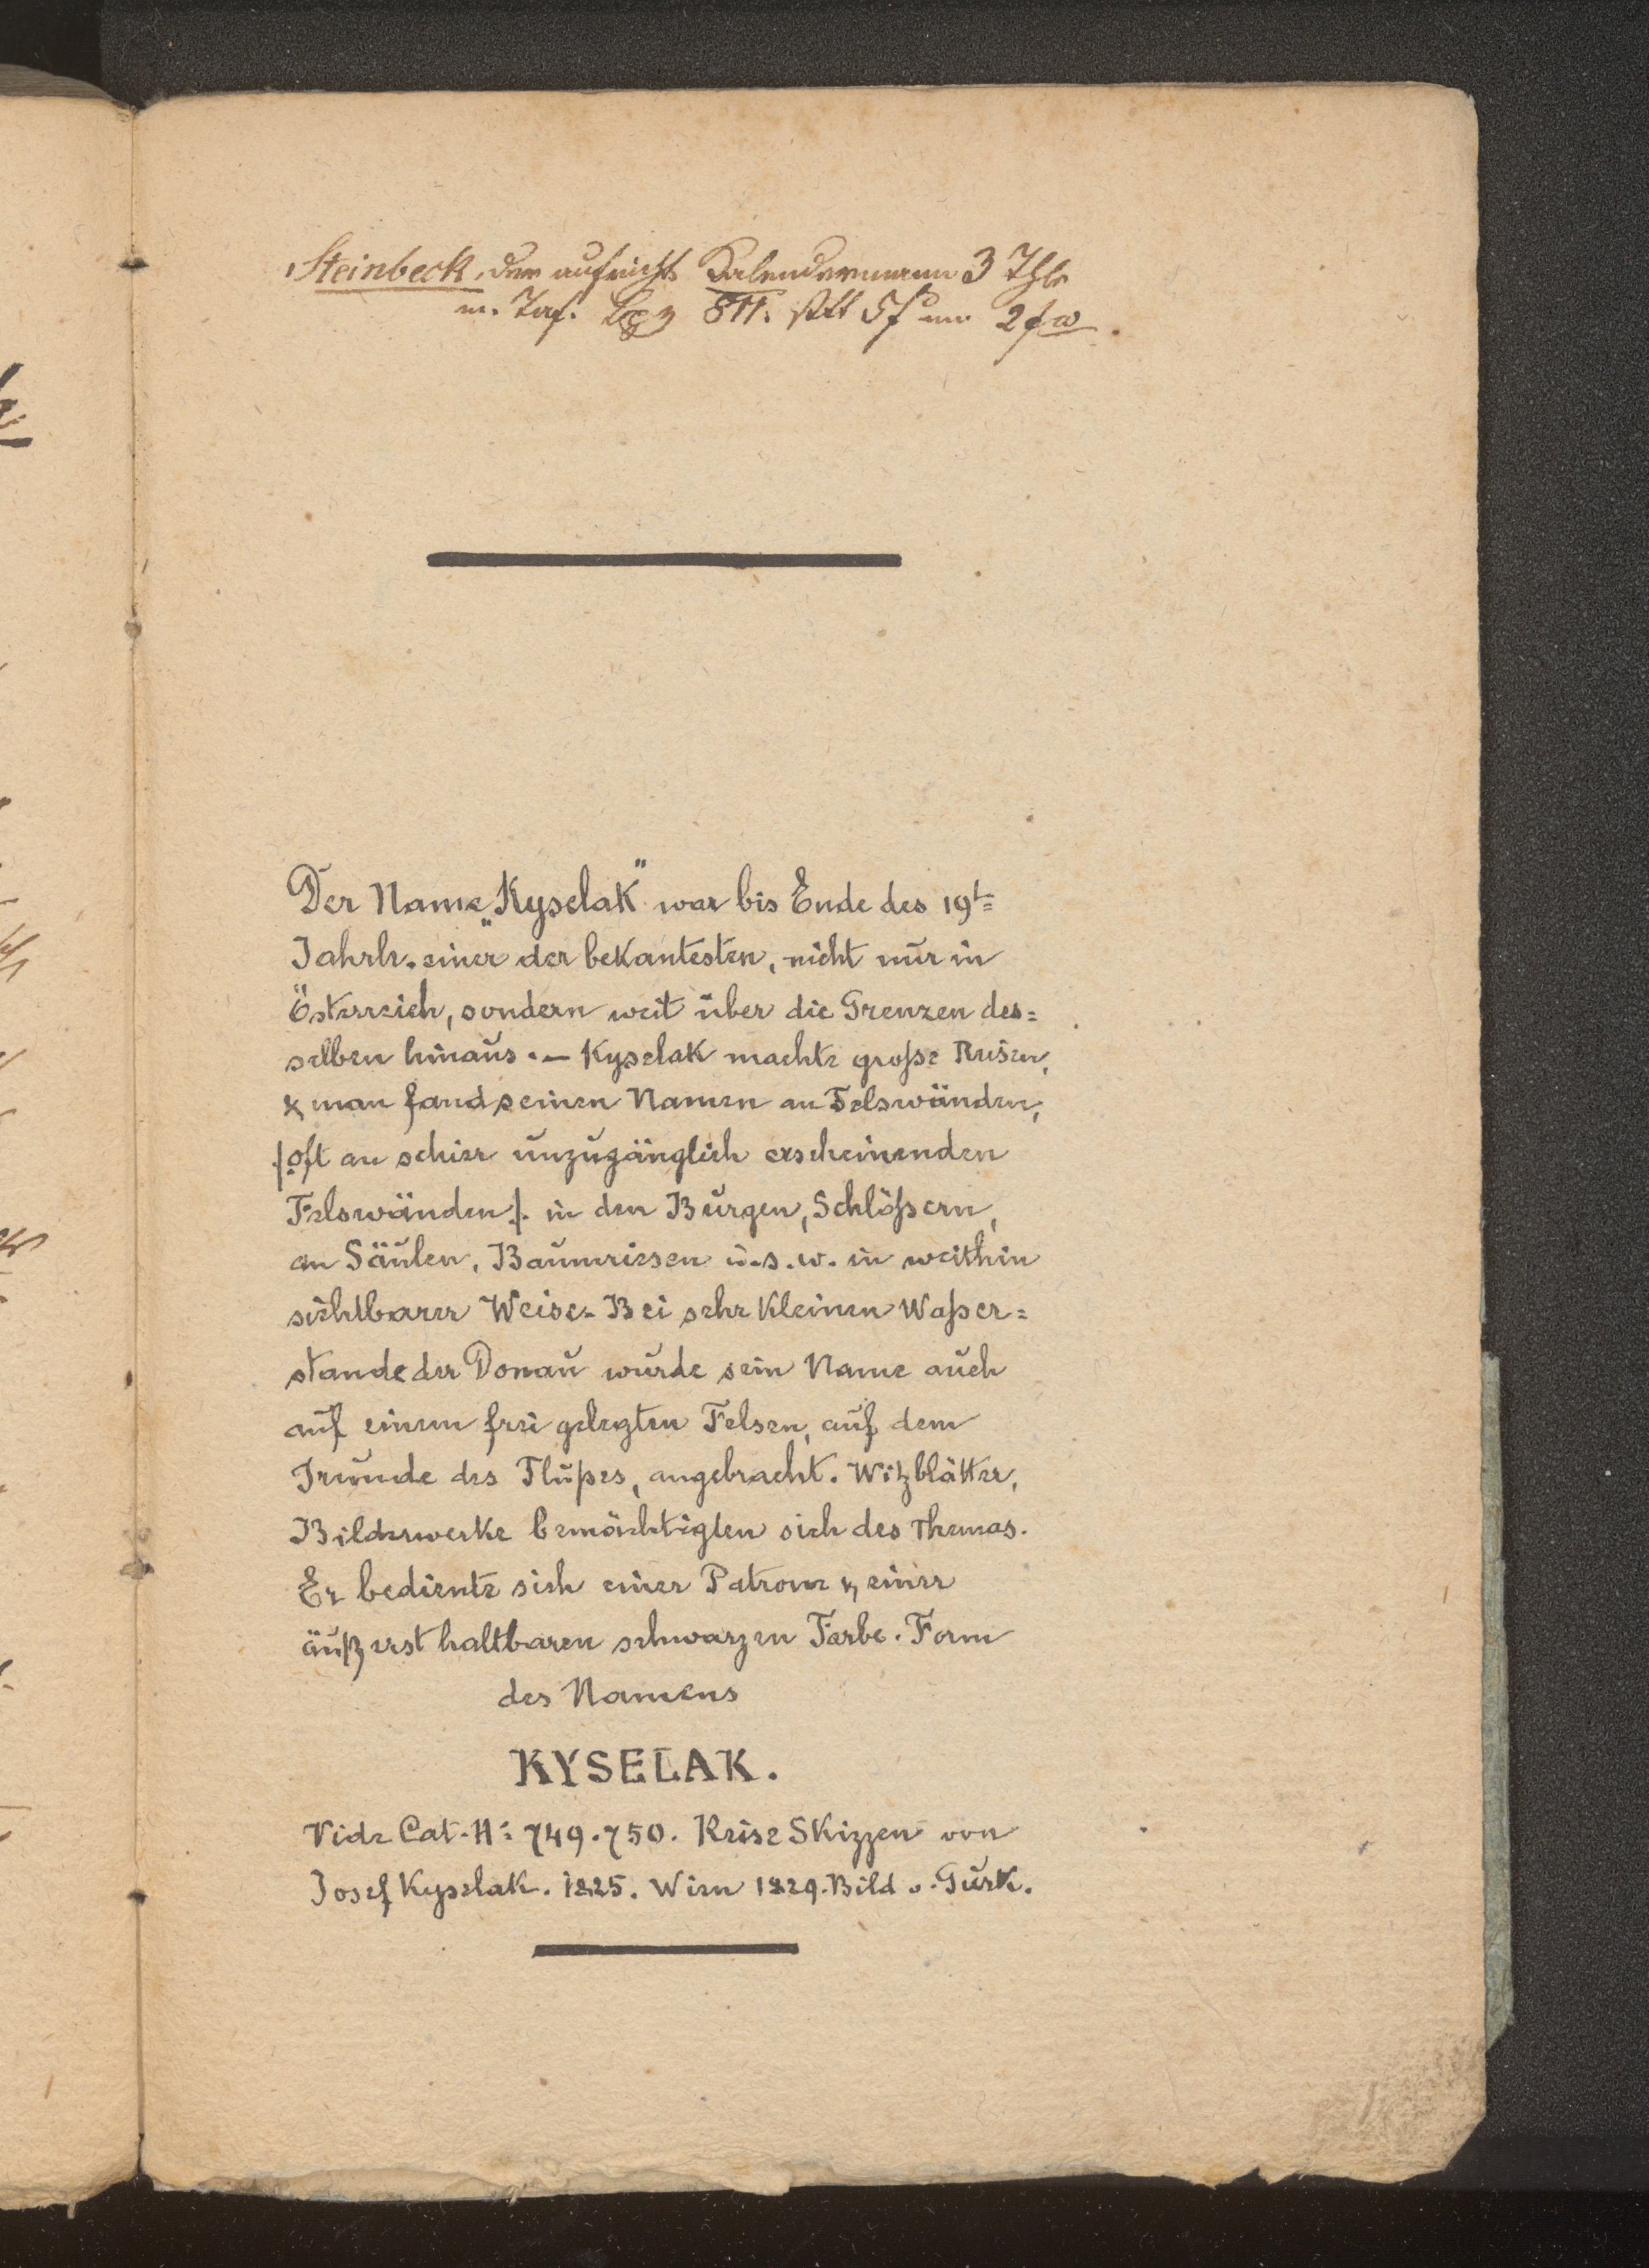 Steinbeck, der aufricht. Kalendermann 3 Thle
m. Taf. Lpz 811. statt 5f nur 2f
Der Name „Kyselak" war bis Ende des 19t=
Jahrh. einer der bekantesten, nicht nur in
Österreich, sondern weit über die Grenzen des=
selben hinaus. — Kyselak machte große Reisen,
& man fand seinen Namen an Felswänden,
/:oft an schier unzugänglich erscheinenden
Felswänden:/ in den Burgen, Schlößern,
an Säulen, Baumriesen u.s.w. in weithin
sichtbarer Weise. Bei sehr kleinen Waßer=
stande der Donau wurde sein Name auch
auf einem frei gelegten Felsen, auf dem
Grunde des Flußes, angebracht. Witzblätter,
Bilderwerke bemächtigten sich des Themas.
Er bediente sich einer Patrone & einer
äußerst haltbaren schwarzen Farbe. Form
des Namens
KYSELAK.
Vide Cat. N= 749.750. Reise Skizzen von
Josef Kyselak. 1825. Wien 1829. Bild v. Gurk.